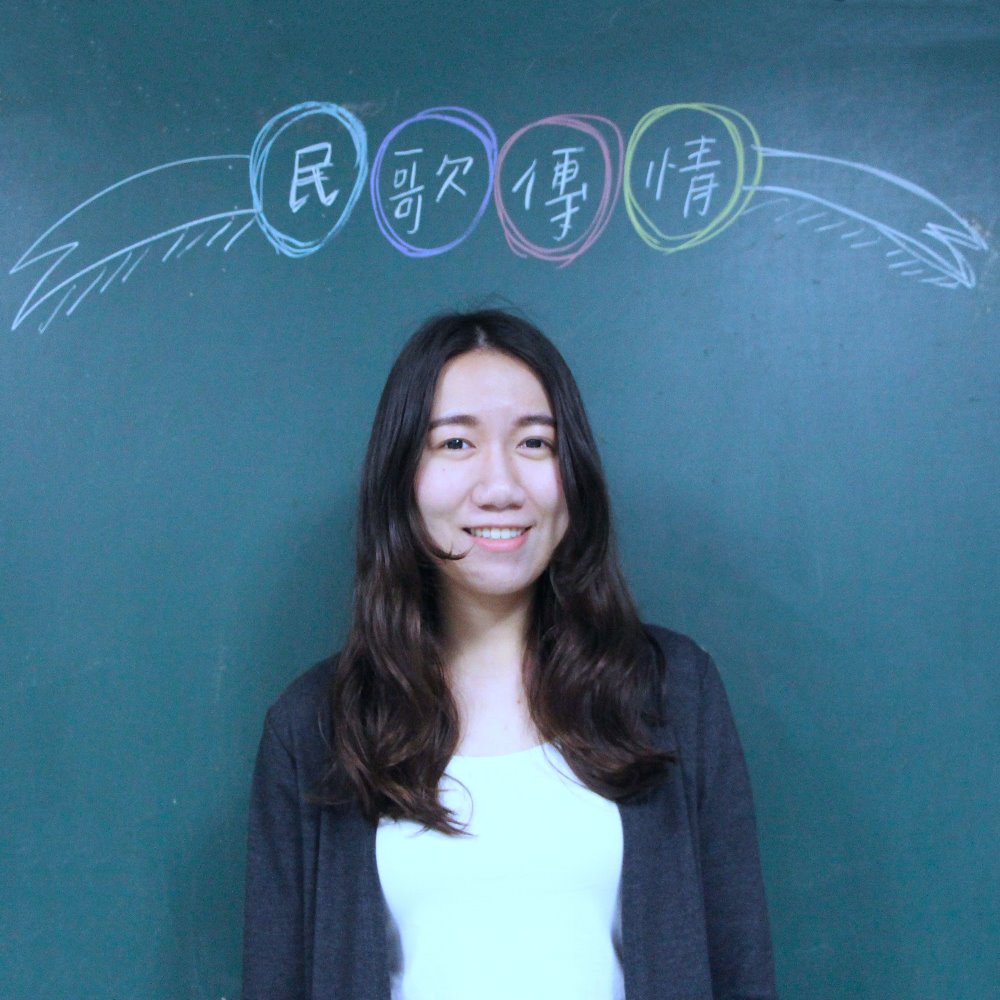 民歌傳情